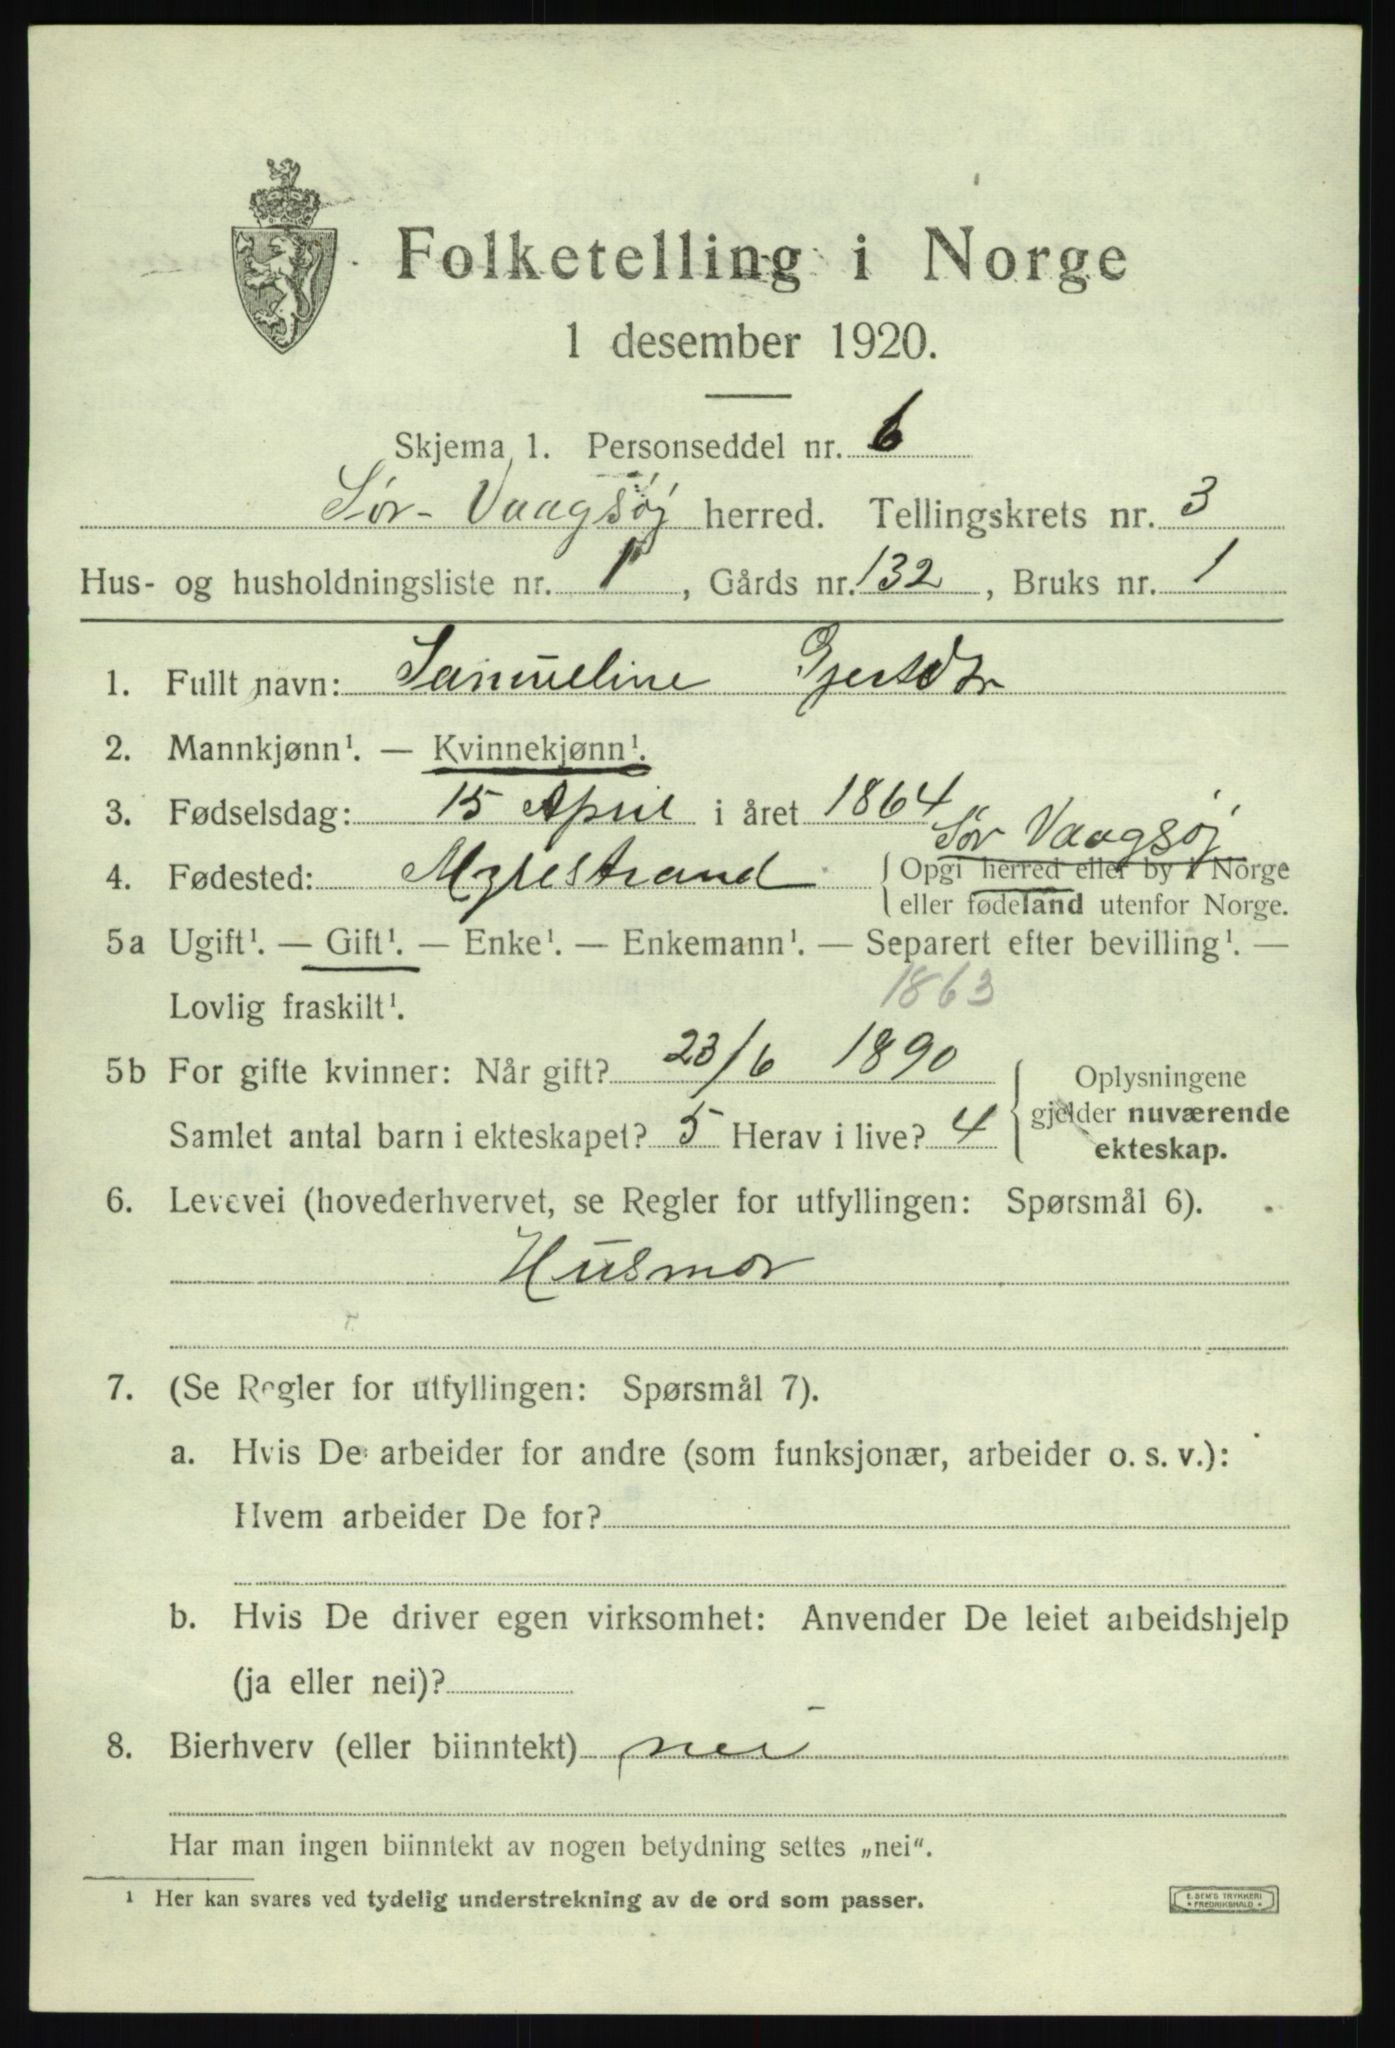 Folketelling i Norge
1 desember 1920.
Skjema 1. Personseddel nr. 6
Sør-Vaagsøj herred. Tellingskrets nr. 3
Hus- og husholdningsliste nr. 1, Gårds nr. 132, Bruks nr. 1
1. Fullt navn: Samueline Gjertsdtr
2. Mannkjønn¹. — Kvinnekjønn¹.
3. Fødselsdag: 15 April i året 1864
Sør Vaagsøj
4. Fødested: Myrestrand {Opgi herred eller by i Norge
eller fødeland utenfor Norge.
5a Ugift¹. — Gift¹. — Enke¹. — Enkemann¹. — Separert efter bevilling¹. —
1863
Lovlig fraskilt¹.
5b For gifte kvinner: Når gift? 23/6 1890 Oplysningene
gjelder nuværende
Samlet antal barn i ekteskapet? 5 Herav i live? 4
ekteskap.
6. Levevei (hovederhvervet, se Regler for utfyllingen: Spørsmål 6).
Husmor
7. (Se Regler for utfyllingen: Spørsmål 7).
a. Hvis De arbeider for andre (som funksjonær, arbeider o. s. v.):
Hvem arbeider De for?
b. Hvis De driver egen virksomhet: Anvender De leiet arbeidshjelp
(ja eller nei)?
8. Bierhverv (eller biinntekt) nei
Har man ingen biinntekt av nogen betydning settes „nei“.
¹ Her kan svares ved tydelig understrekning av de ord som passer.
E. SEM'S TRYKKERI
* FREDRIKSHALD *